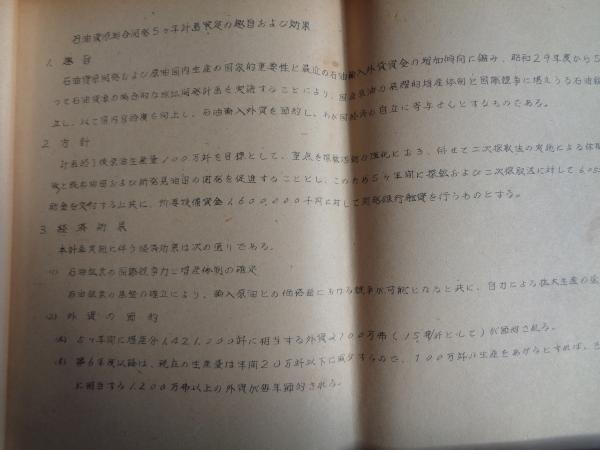 石油資源総合開発5ヶ年計画策定の趣旨および効果
1. 趣旨
石油資源開発および原油国内生産の国家的重要性と最近の石油輸入外貨資金の増加傾向に鑑み、昭和29年度から5
って石油資源の総合的な探鉱開発計画を実施することにより、国産原油の飛躍的増産体制と国際競争に堪えうる石油鉱
立し、以て国内自給度を向上し、石油輸入外貨を節約し、わが国経済の自立に寄与せんとするものである。
2. 方針
計画完遂後原油生産量100万竏を目標として、重点を探鉱活動の強化におき、併せて二次採取法の実施による
既存油田および新発見油田の開発を促進することとし、このため5ヶ年間に探鉱および二次採取法に対して
助金を交付すると共に、所要設備資金1,600,000千円に対して開発銀行融資を行うものとする。
3. 経済効果
本計画実施に伴う経済効果は次の通りである。
(1) 石油鉱業の国際競争力と増産体制の確定
石油鉱業の基盤の確立により、輸入原油との価格面における競争が可能となると共に、自力による拡大生産の
(2) 外貨の節約
(A) 5ヶ年間に増産分1,421,000竏に相当する外貨2,100万弗(15弗/竏として)が節約される。
(B) 第6年度以降は、現在の生産量は年間20万竏以下に減少するので、100万竏の生産をあげるとすれば、
に相当する1,200万弗以上の外貨が毎年節約される。